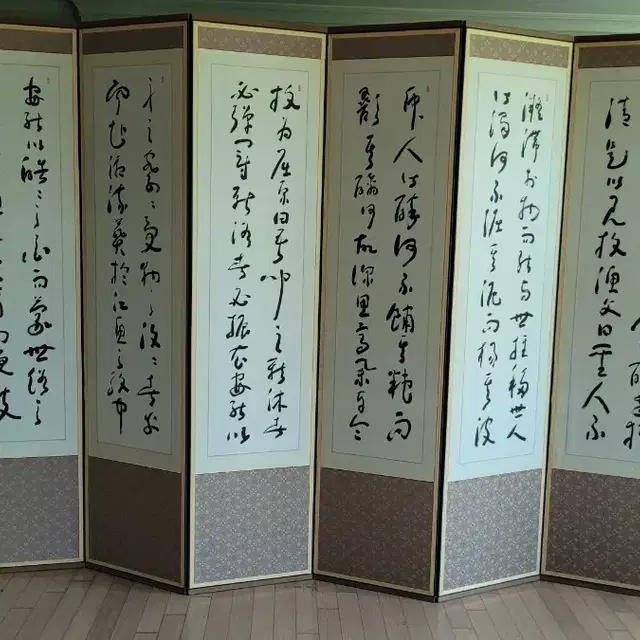 是以見放漁父曰聖人不
凝滯於物而能與世推移世人
皆濁何不淈其泥而揚其波
衆人皆醉何不餔其糟而
歠其醨何故深思高擧自令
放爲屈原曰吾聞之新沐者
必彈冠新浴者必振衣安能以
身之察察受物之汶汶者乎
寧赴湘流葬於江魚之腹中
安能以皓皓之白而蒙世俗之